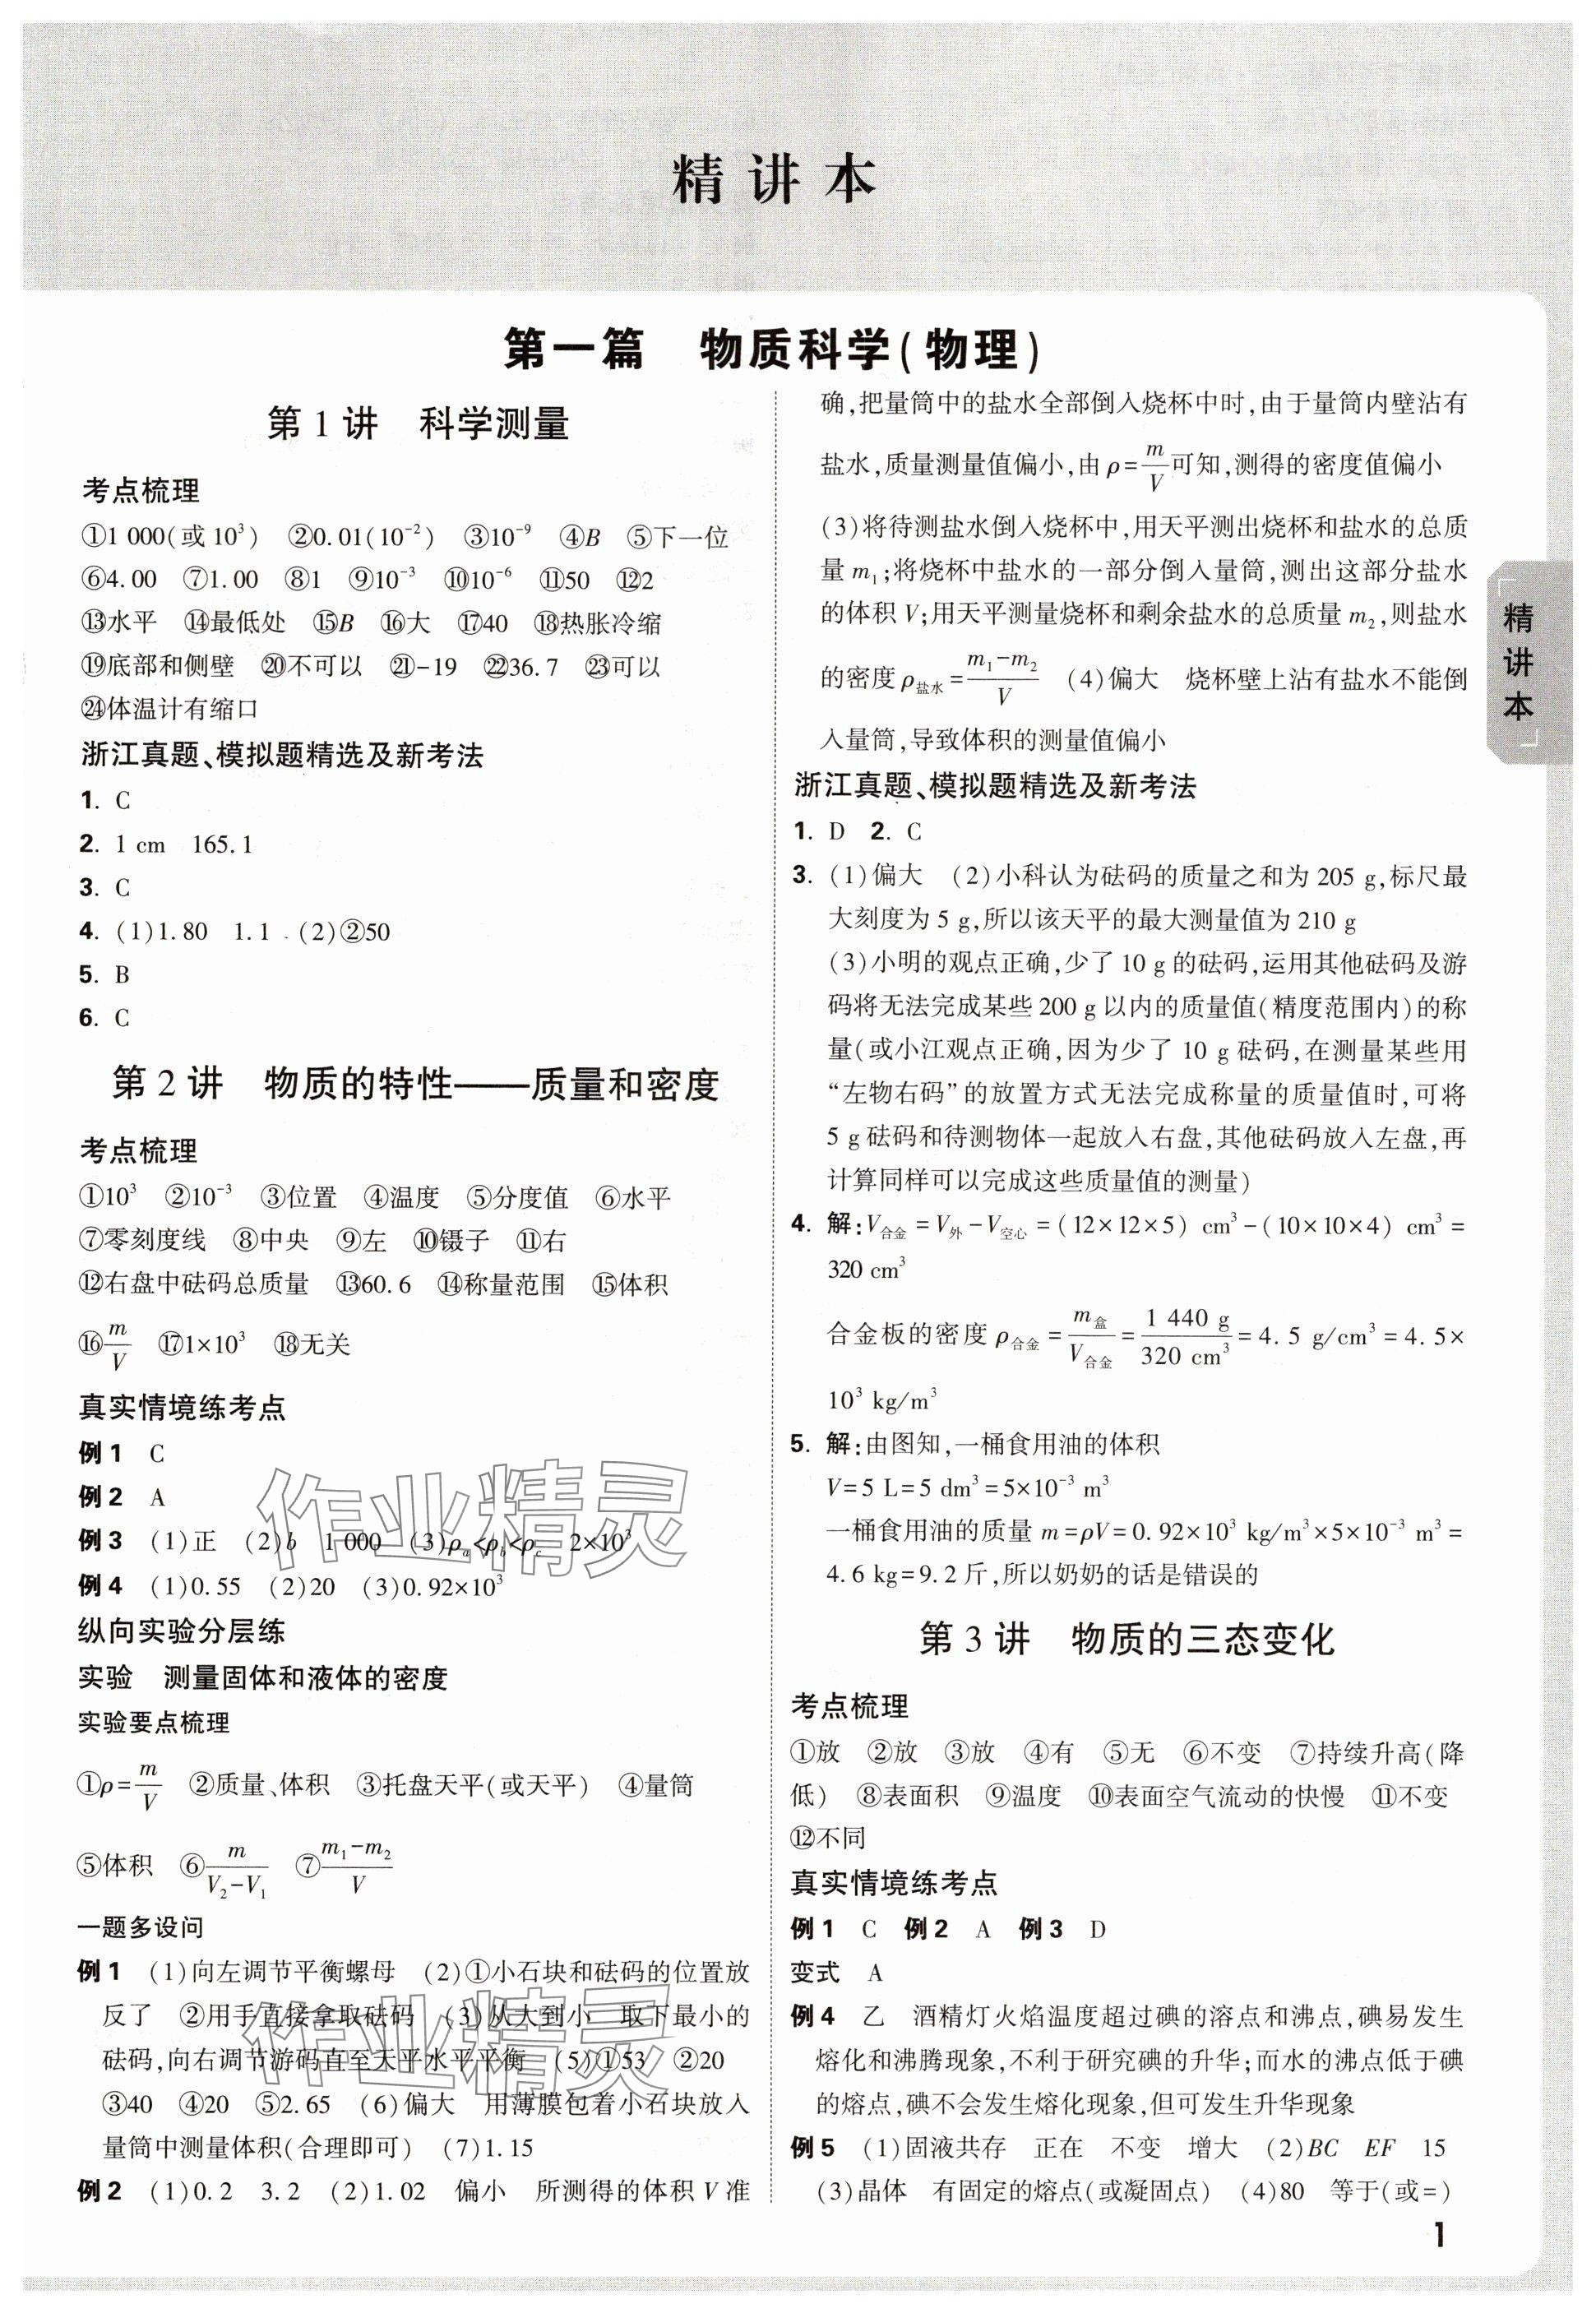 精讲本
第一篇 物质科学(物理)
第1讲 科学测量
考点梳理
①1 000(或10³) ②0.01(10⁻²) ③10⁻⁹ ④B ⑤下一位
⑥4.00 ⑦1.00 ⑧1 ⑨10⁻³ ⑩10⁻⁶ ⑪50 ⑫2
⑬水平 ⑭最低处 ⑮B ⑯大 ⑰40 ⑱热胀冷缩
⑲底部和侧壁 ⑳不可以 ㉑-19 ㉒36.7 ㉓可以
㉔体温计有缩口
浙江真题、模拟题精选及新考法
1. C
2. 1 cm 165.1
3. C
4. (1)1.80 1.1 (2)②50
5. B
6. C
第2讲 物质的特性——质量和密度
考点梳理
①10³ ②10⁻³ ③位置 ④温度 ⑤分度值 ⑥水平
⑦零刻度线 ⑧中央 ⑨左 ⑩镊子 ⑪右
⑫右盘中砝码总质量 ⑬60.6 ⑭称量范围 ⑮体积
⑯m/V ⑰1×10³ ⑱无关
真实情境练考点
例1 C
例2 A
例3 (1)正 (2)b 1 000 (3)ρa<ρb<ρc 2×10³
例4 (1)0.55 (2)20 (3)0.92×10³
纵向实验分层练
实验 测量固体和液体的密度
实验要点梳理
①ρ=m/V ②质量、体积 ③托盘天平(或天平) ④量筒
⑤体积 ⑥m/(V₂-V₁) ⑦(m₁-m₂)/V
一题多设问
例1 (1)向左调节平衡螺母 (2)①小石块和砝码的位置放
反了 ②用手直接拿取砝码 (3)从大到小 取下最小的
砝码,向右调节游码直至天平水平平衡 (5)①53 ②20
③40 ④20 ⑤2.65 (6)偏大 用薄膜包着小石块放入
量筒中测量体积(合理即可) (7)1.15
例2 (1)0.2 3.2 (2)1.02 偏小 所测得的体积V准
确,把量筒中的盐水全部倒入烧杯中时,由于量筒内壁沾有
盐水,质量测量值偏小,由ρ=m/V可知,测得的密度值偏小
(3)将待测盐水倒入烧杯中,用天平测出烧杯和盐水的总质
量m₁;将烧杯中盐水的一部分倒入量筒,测出这部分盐水
的体积V;用天平测量烧杯和剩余盐水的总质量m₂,则盐水
的密度ρ盐水=(m₁-m₂)/V (4)偏大 烧杯壁上沾有盐水不能倒
入量筒,导致体积的测量值偏小
浙江真题、模拟题精选及新考法
1. D 2. C
3. (1)偏大 (2)小科认为砝码的质量之和为205 g,标尺最
大刻度为5 g,所以该天平的最大测量值为210 g
(3)小明的观点正确,少了10 g的砝码,运用其他砝码及游
码将无法完成某些200 g以内的质量值(精度范围内)的称
量(或小江观点正确,因为少了10 g砝码,在测量某些用
“左物右码”的放置方式无法完成称量的质量值时,可将
5 g砝码和待测物体一起放入右盘,其他砝码放入左盘,再
计算同样可以完成这些质量值的测量)
4. 解:V合金=V外-V空心=(12×12×5) cm³-(10×10×4) cm³=
320 cm³
合金板的密度ρ合金=m盒/V合金=1 440 g/320 cm³=4.5 g/cm³=4.5×
10³ kg/m³
5. 解:由图知,一桶食用油的体积
V=5 L=5 dm³=5×10⁻³ m³
一桶食用油的质量m=ρV=0.92×10³ kg/m³×5×10⁻³ m³=
4.6 kg=9.2斤,所以奶奶的话是错误的
第3讲 物质的三态变化
考点梳理
①放 ②放 ③放 ④有 ⑤无 ⑥不变 ⑦持续升高(降
低) ⑧表面积 ⑨温度 ⑩表面空气流动的快慢 ⑪不变
⑫不同
真实情境练考点
例1 C 例2 A 例3 D
变式 A
例4 乙 酒精灯火焰温度超过碘的溶点和沸点,碘易发生
熔化和沸腾现象,不利于研究碘的升华;而水的沸点低于碘
的熔点,碘不会发生熔化现象,但可发生升华现象
例5 (1)固液共存 正在 不变 增大 (2)BC EF 15
(3)晶体 有固定的熔点(或凝固点) (4)80 等于(或=)
精讲本
1
作业精灵
作业精灵